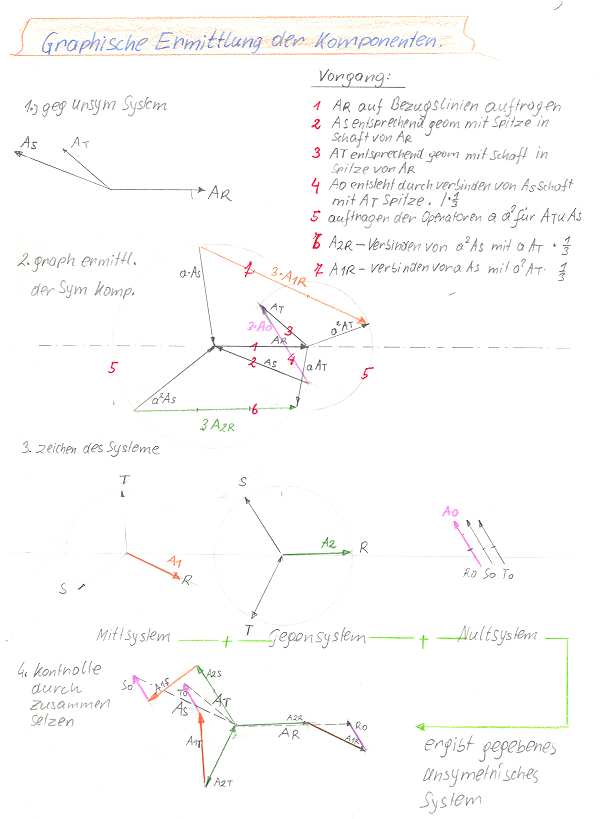 Graphische Ermittlung der Komponenten.
Vorgang:
1.) geg unsym System
1 AR auf Bezugslinien auftragen
2 AS entsprechend geom mit Spitze in
Schaft von AR
3 AT entsprechend geom mit Schaft in
Spitze von AR
4 A0 entsteht durch verbinden von AS Schaft
mit AT Spitze. 1·1/3
5 auftragen der Operatoren a a² für AT u AS
6 A2R - Verbinden von a²AS mit aAT · 1/3
7 A1R - verbinden von aAS mit a²AT · 1/3
AS
AT
AR
2. graph ermittl.
der Sym Komp.
a·AS
7
3·A1R
AT
3·A0
3
a²AT
AR
1
2
AS
4
aAT
5
5
a²AS
6
3A2R
3. zeichen des Systeme
T
A1
R
S
S
A2
R
T
A0
R0 S0 T0
Mittsystem + Gegensystem + Nullsystem
4. Kontrolle
durch
zusammen
setzen
S0
A1S
A2S
T0
AT
AS
A1T
A2T
A2R
AR
R0
A1R
ergibt gegebenes
unsymetrisches
System